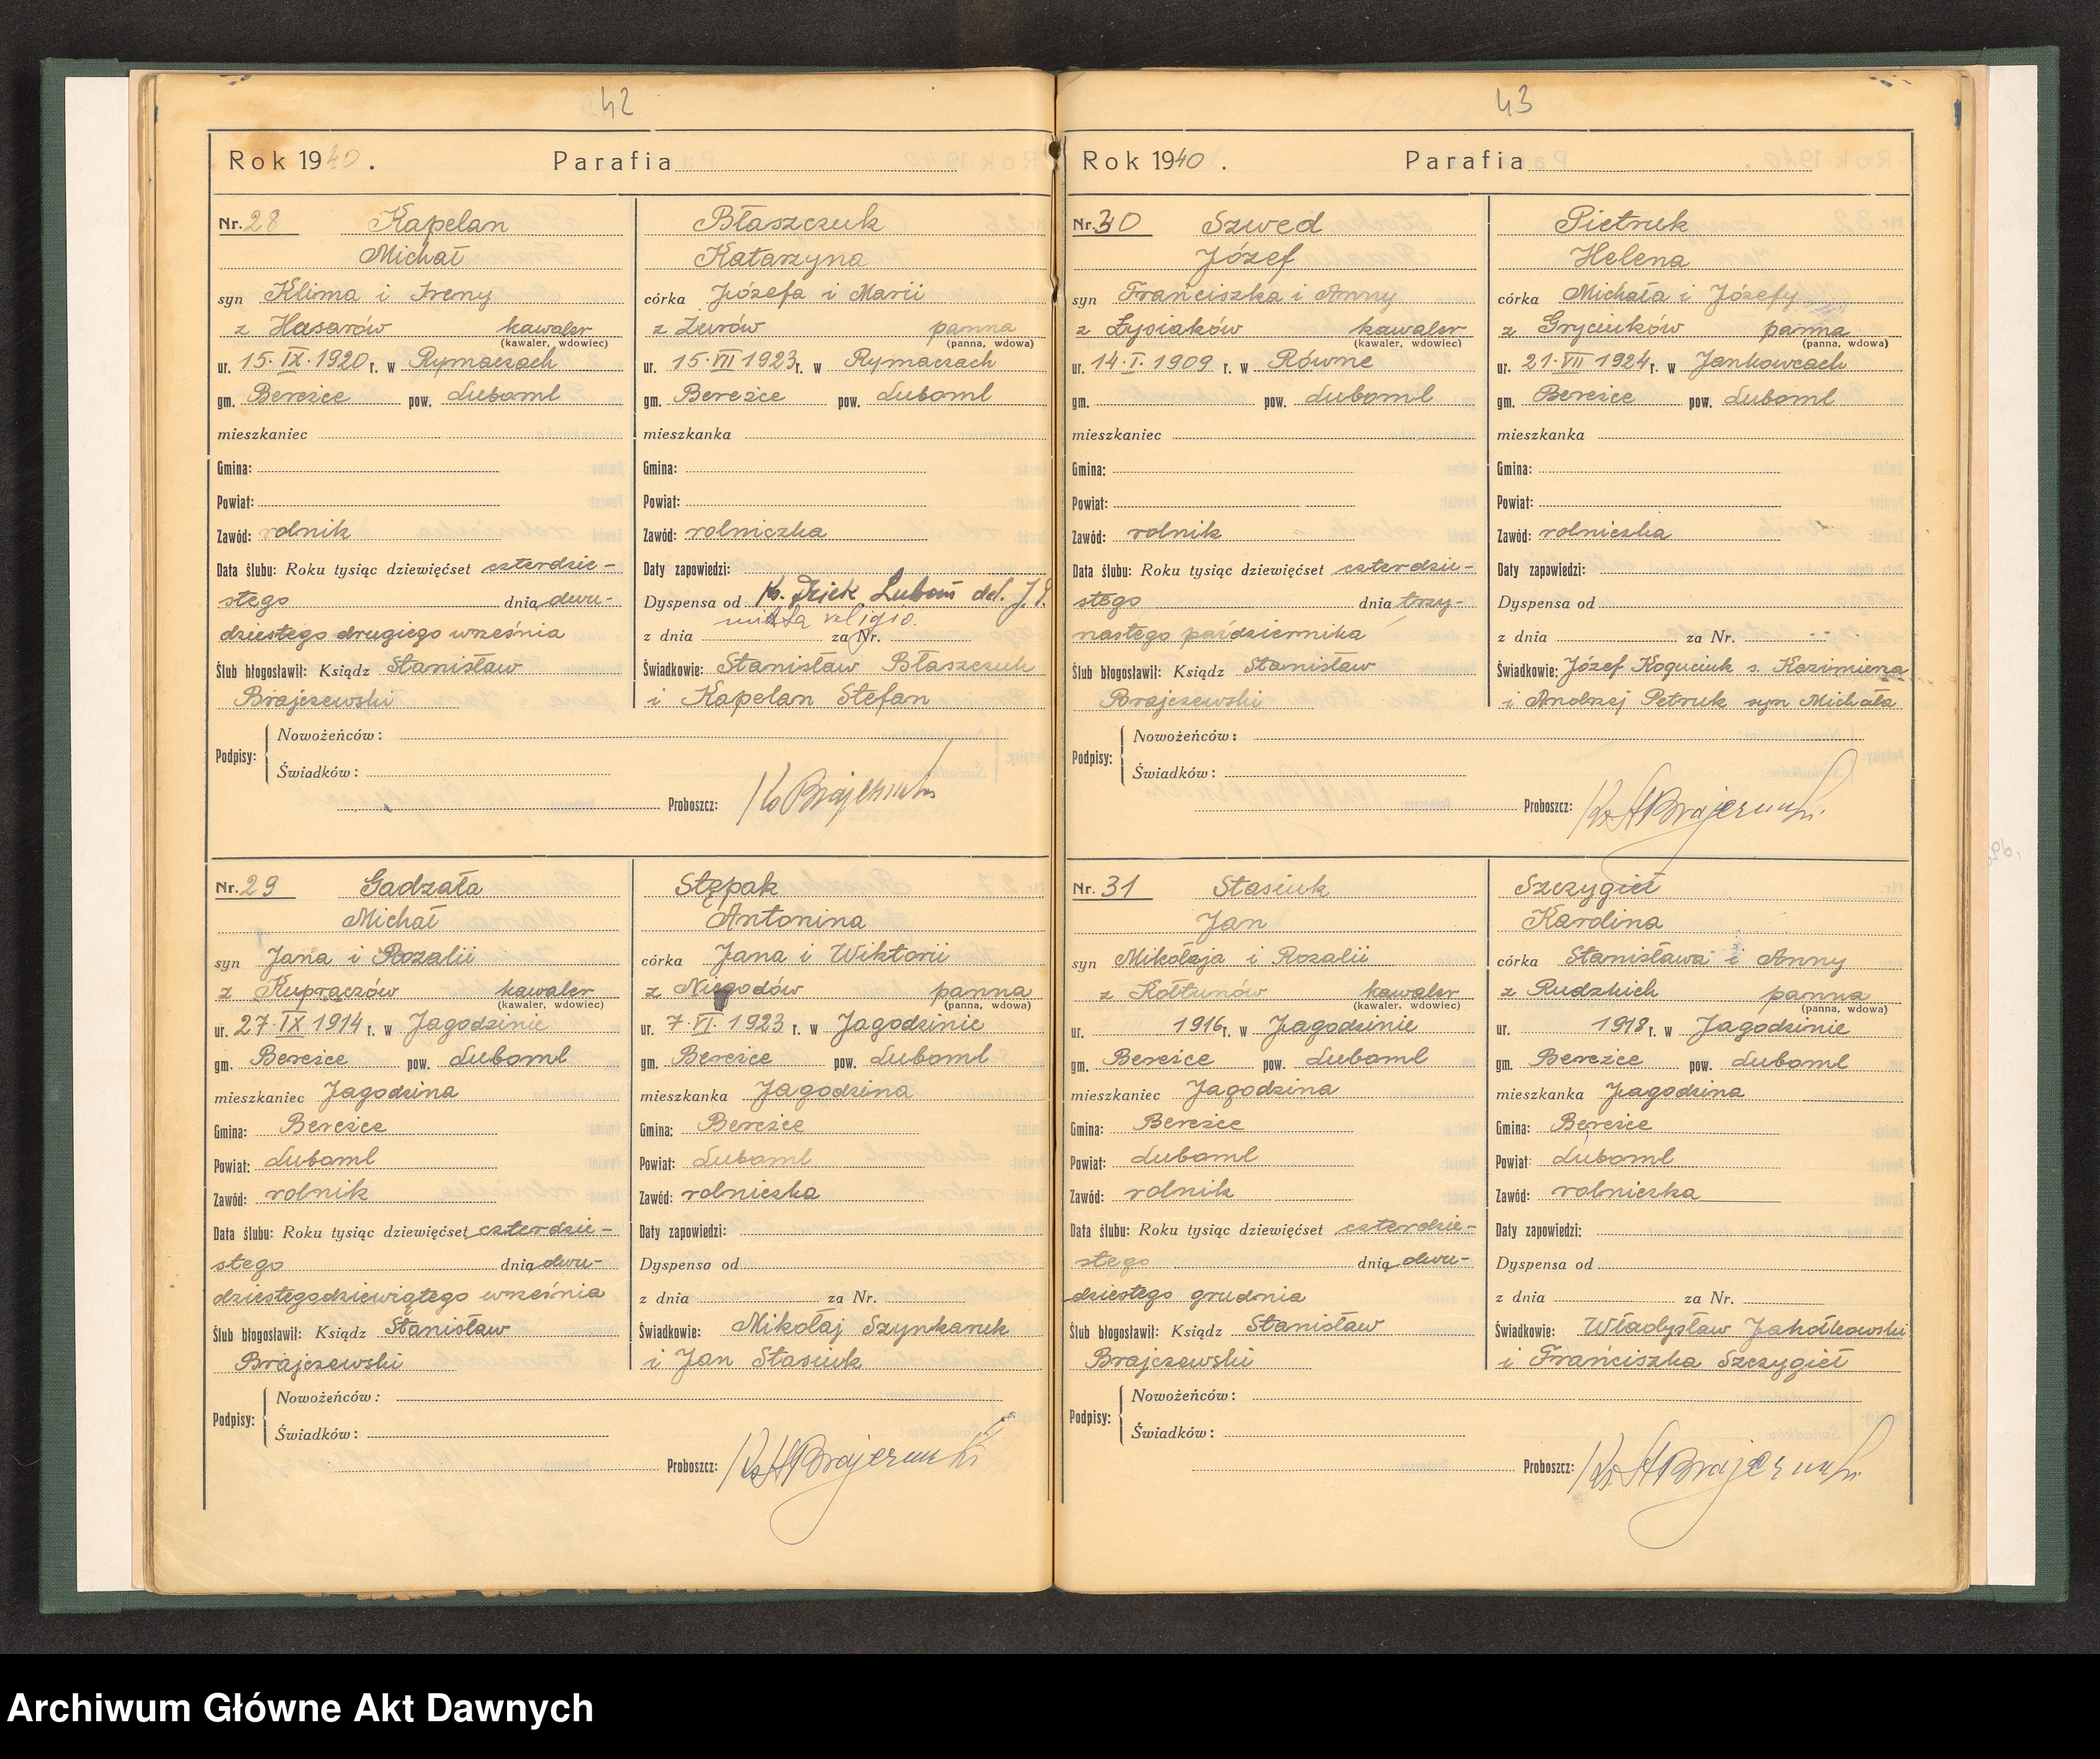 42
Rok 1940. Parafia
Nr. 28 Kapelan
Michał
syn Klima i Ireny
z Hasarów kawaler
(kawaler, wdowiec)
ur. 15.IX.1920 r. w Rymaczach
gm. Bereżce pow. Luboml
mieszkaniec
Gmina:
Powiat:
Zawód: rolnik
Data ślubu: Roku tysiąc dziewięćset czterdzie-
stego dnia dwu-
dziestego drugiego września
Ślub błogosławił: Ksiądz Stanisław
Brajczewski
Błaszczuk
Katarzyna
córka Józefa i Marii
z Żurów panna
(panna, wdowa)
ur. 15.VII 1923 r. w Rymaczach
gm. Bereżce pow. Luboml
mieszkanka
Gmina:
Powiat:
Zawód: rolniczka
Daty zapowiedzi:
Dyspensa od Ks. Dziek Lubom del. J.
mixta religio.
z dnia za Nr.
Świadkowie: Stanisław Błaszczuk
i Kapelan Stefan
Podpisy: Nowożeńców:
Świadków:
Proboszcz: Ks Brajczewski
Nr. 29 Gadzała
Michał
syn Jana i Rozalii
z Kuprączów kawaler
(kawaler, wdowiec)
ur. 27.IX 1914 r. w Jagodzinie
gm. Bereżce pow. Luboml
mieszkaniec Jagodzina
Gmina: Bereżce
Powiat: Luboml
Zawód: rolnik
Data ślubu: Roku tysiąc dziewięćset czterdzie-
stego dnia dwu-
dziestegodziewiątego września
Ślub błogosławił: Ksiądz Stanisław
Brajczewski
Stępak
Antonina
córka Jana i Wiktorii
z Niegodów panna
(panna, wdowa)
ur. 7.VI.1923 r. w Jagodzinie
gm. Bereżce pow. Luboml
mieszkanka Jagodzina
Gmina: Bereżce
Powiat: Luboml
Zawód: rolniczka
Daty zapowiedzi:
Dyspensa od
z dnia za Nr.
Świadkowie: Mikołaj Szynkaruk
i Jan Stasiuk
Podpisy: Nowożeńców:
Świadków:
Proboszcz: Ks St Brajczewski
43
Rok 1940. Parafia
Nr. 30 Szwed
Józef
syn Franciszka i Anny
z Łysiaków kawaler
(kawaler, wdowiec)
ur. 14.I.1909 r. w Równe
gm. pow. Luboml
mieszkaniec
Gmina:
Powiat:
Zawód: rolnik
Data ślubu: Roku tysiąc dziewięćset czterdzie-
stego dnia trzy-
nastego października
Ślub błogosławił: Ksiądz Stanisław
Brajczewski
Pietruk
Helena
córka Michała i Józefy
z Gryciuków panna
(panna, wdowa)
ur. 21.VII 1924 r. w Jankowcach
gm. Bereżce pow. Luboml
mieszkanka
Gmina:
Powiat:
Zawód: rolniczka
Daty zapowiedzi:
Dyspensa od
z dnia za Nr.
Świadkowie: Józef Koguciuk s. Kazimierza
i Andrzej Petruk syn Michała
Podpisy: Nowożeńców:
Świadków:
Proboszcz: Ks. St Brajczewski
Nr. 31 Stasiuk
Jan
syn Mikołaja i Rozalii
z Kołtunów kawaler
(kawaler, wdowiec)
ur. 1916 r. w Jagodzinie
gm. Bereżce pow. Luboml
mieszkaniec Jagodzina
Gmina: Bereżce
Powiat: Luboml
Zawód: rolnik
Data ślubu: Roku tysiąc dziewięćset czterdzie-
stego dnia dwu-
dziestego grudnia
Ślub błogosławił: Ksiądz Stanisław
Brajczewski
Szczygieł
Karolina
córka Stanisława i Anny
z Rudzkich panna
(panna, wdowa)
ur. 1918 r. w Jagodzinie
gm. Bereżce pow. Luboml
mieszkanka Jagodzina
Gmina: Bereżce
Powiat: Luboml
Zawód: rolniczka
Daty zapowiedzi:
Dyspensa od
z dnia za Nr.
Świadkowie: Władysław
i Franciszka Szczygieł
Podpisy: Nowożeńców:
Świadków:
Proboszcz: Ks. St Brajczewski
Archiwum Główne Akt Dawnych